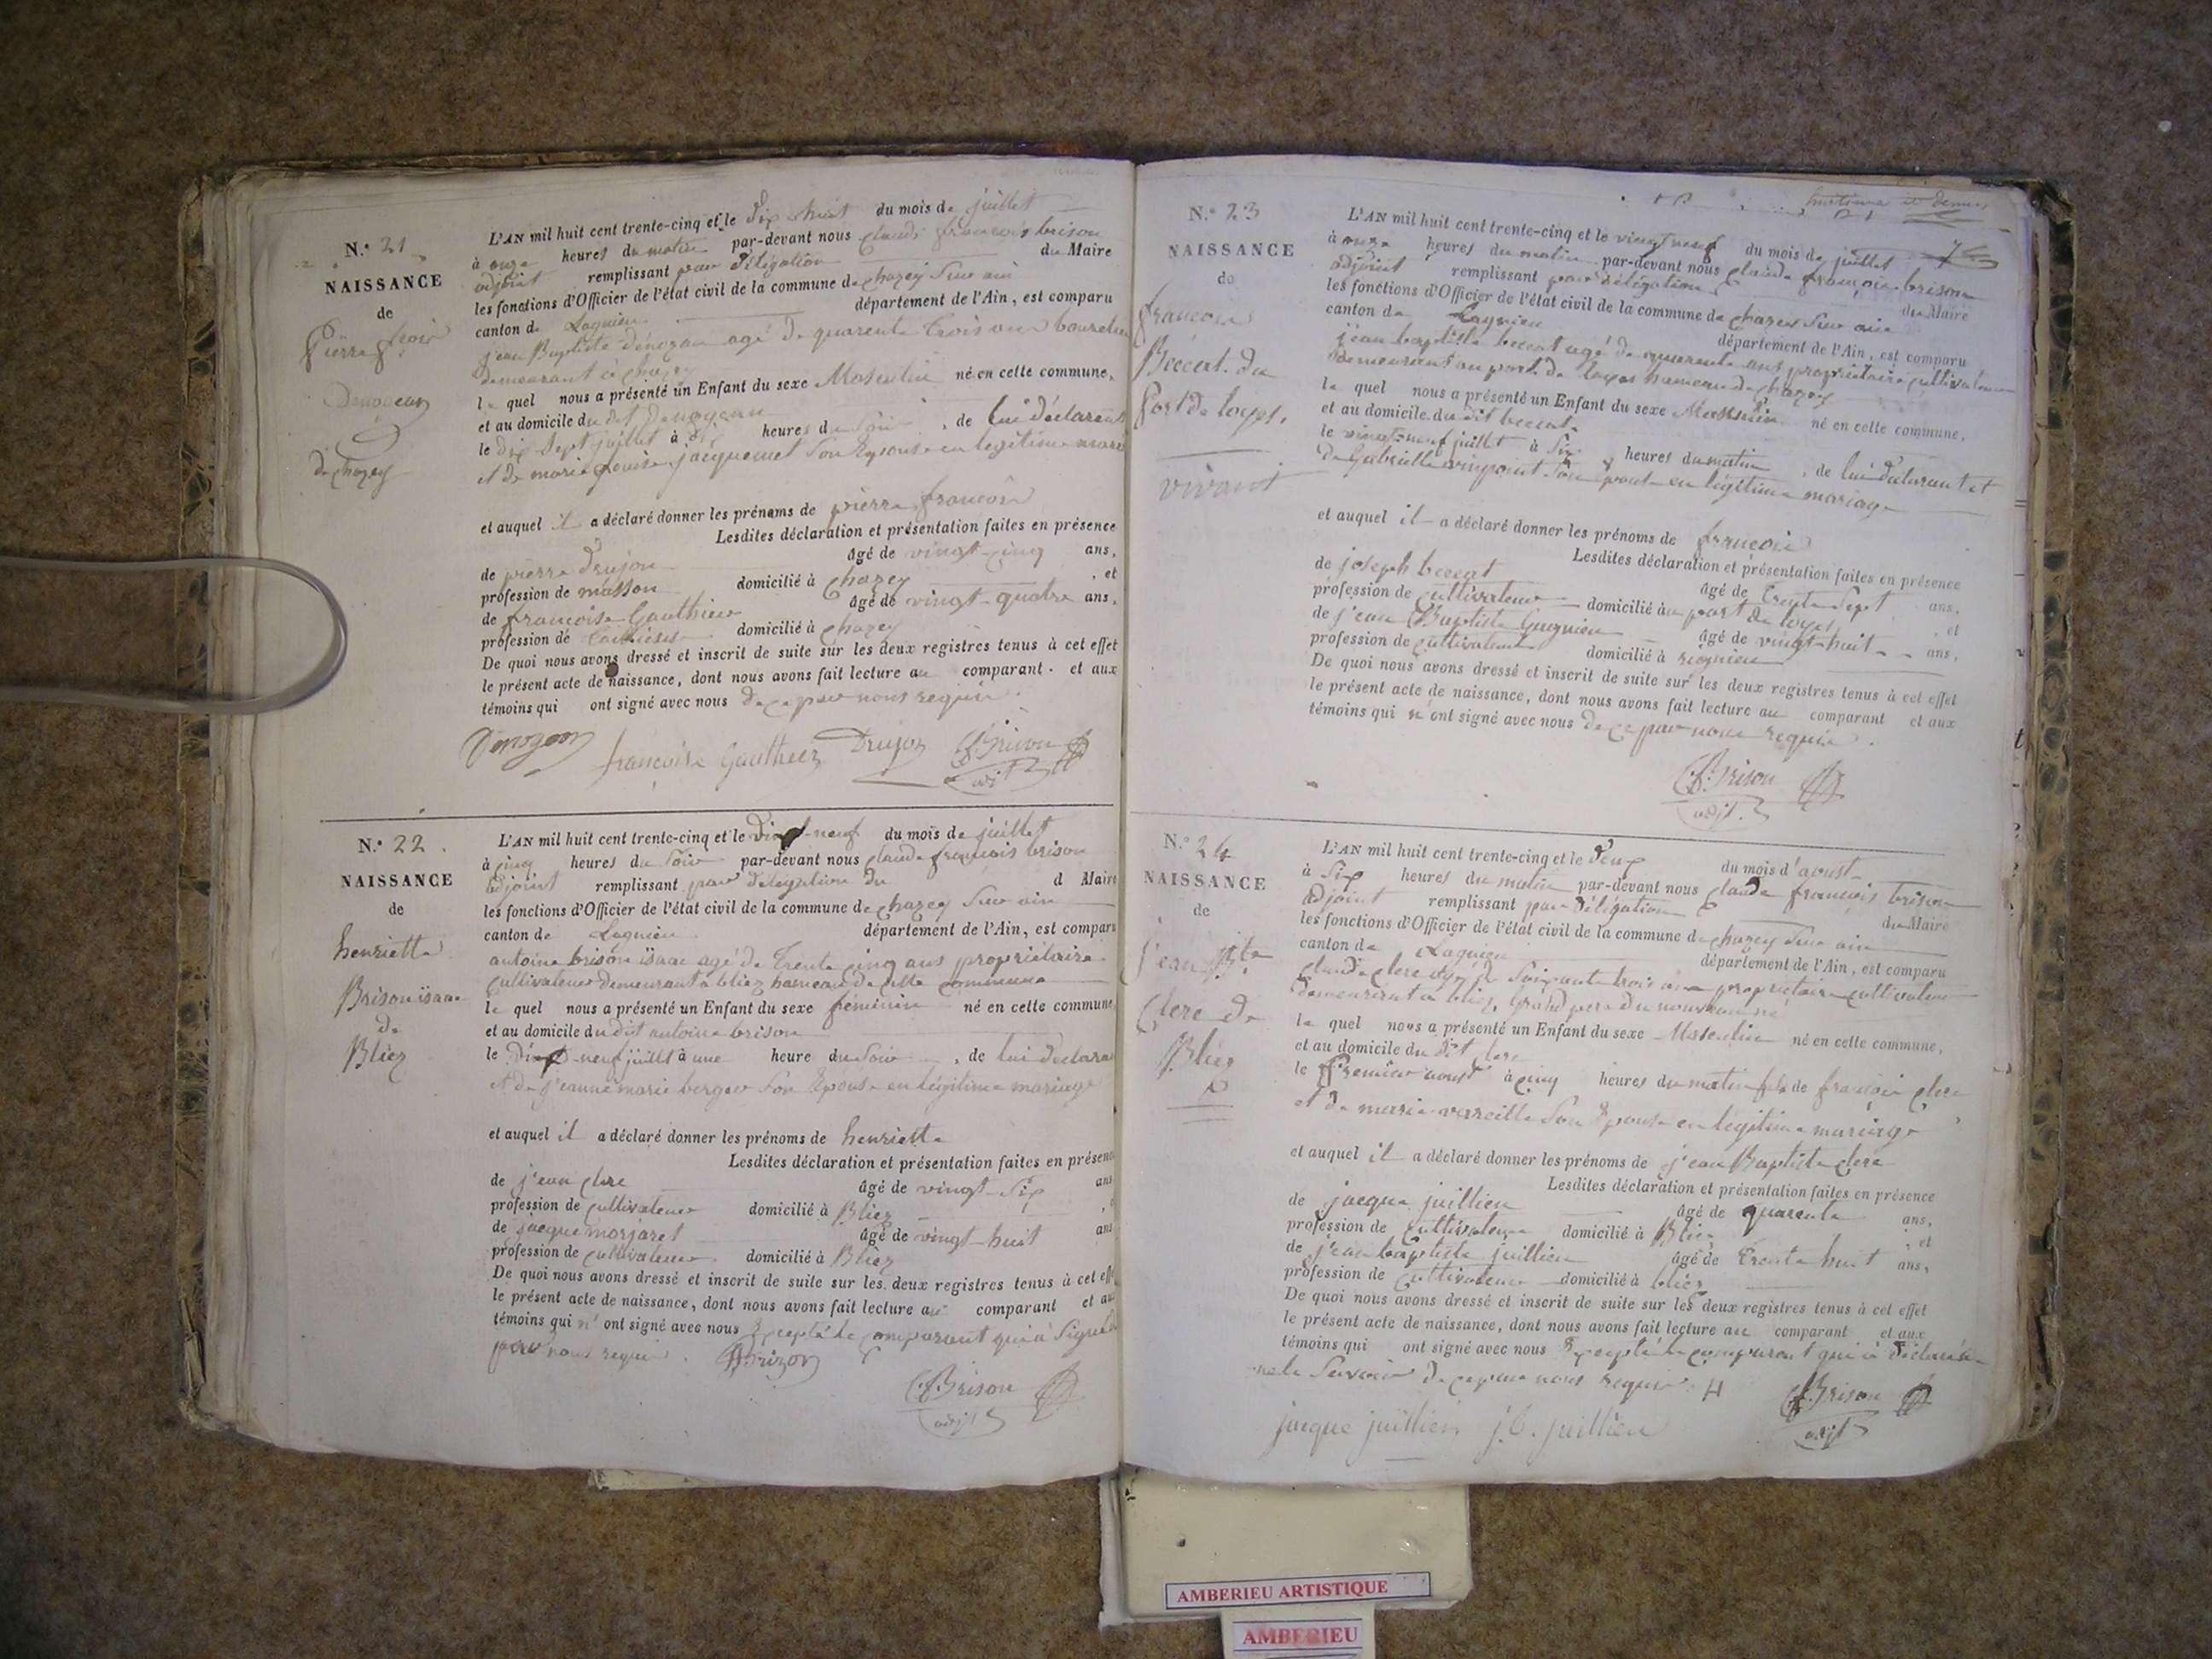 N.° 21
NAISSANCE
de
Pierre françois
Denogean
de Chazey
L'AN mil huit cent trente-cinq et le dix huit du mois de juillet
à onze heures du matin par-devant nous claude françois brison
adjoint remplissant par délégation du Maire
les fonctions d'Officier de l'état civil de la commune de chazey Sur ain
canton de Lagnieu département de l'Ain, est comparu
jean Baptiste agé de quarente trois ans
demeurant à chazey
le quel nous a présenté un Enfant du sexe Masculin né en cette commune,
et au domicile du dit
le dix Sept juillet à heures du Soir, de lui déclarant
et de marie louise jacquemet Son Epouse en legitime mariage
et auquel il a déclaré donner les prénoms de pierre françois
Lesdites déclaration et présentation faites en présence
de pierre Drujon âgé de vingt-cinq ans,
profession de masson domicilié à chazey, et
de françoise Gauthier âgé de vingt-quatre ans,
profession de domicilié à chazey
De quoi nous avons dressé et inscrit de suite sur les deux registres tenus à cet effet
le présent acte de naissance, dont nous avons fait lecture au comparant. et aux
témoins qui ont signé avec nous de ce par nous requis.
françoise Gauthier Drujon Cf. Brison
adjt
N.° 22
NAISSANCE
de
henriette
Brison isaac
de
Bliez
L'AN mil huit cent trente-cinq et le dix-neuf du mois de juillet
à cinq heures du Soir par-devant nous claude françois brison
adjoint remplissant par délégation du d Maire
les fonctions d'Officier de l'état civil de la commune de chazey Sur ain
canton de Lagnieu département de l'Ain, est comparu
antoine brison isaac agé de trente cinq ans propriétaire
cultivateur demeurant à bliez hameau de cette commune
le quel nous a présenté un Enfant du sexe féminin né en cette commune
et au domicile du dit antoine brison
le dix-neuf juillt à une heure du Soir, de lui déclara
et de jeanne marie berger Son Epouse en légitime mariage
et auquel il a déclaré donner les prénoms de henriette
Lesdites déclaration et présentation faites en présence
de jean clerc âgé de vingt-Six ans
profession de cultivateur domicilié à Bliez
de jacque morjaret âgé de vingt-huit ans
profession de cultivateur domicilié à Bliez
De quoi nous avons dressé et inscrit de suite sur les deux registres tenus à cet eff
le présent acte de naissance, dont nous avons fait lecture au comparant et au
témoins qui n'ont signé avec nous Excepté le comparant qui à Signé de
par nous requis. Brizon
Cf. Brison
adjt
N.° 23
NAISSANCE
de
françois
Beccat du
Port de loyes.
vivant
L'AN mil huit cent trente-cinq et le vingt neuf du mois de juillet
à onze heures du matin par-devant nous claude françois brison
adjoint remplissant par délégation du Maire
les fonctions d'Officier de l'état civil de la commune de chazey Sur ain
canton de Lagnieu département de l'Ain, est comparu
jean baptiste beccat agé de quarente ans propriétaire cultivateur
demeurant au port de loyes hameau de chazey
le quel nous a présenté un Enfant du sexe Masculin né en cette commune,
et au domicile du dit beccat
le vingt-neuf juillet à Six heures du matin, de lui déclarant et
de Gabrielle Son Epouse en légitime mariage
et auquel il a déclaré donner les prénoms de françois
Lesdites déclaration et présentation faites en présence
de joseph beccat âgé de trente Sept ans,
profession de cultivateur domicilié au port de loyes, et
de jean Baptiste Gagnieu âgé de vingt-huit ans,
profession de cultivateur domicilié à rignieu
De quoi nous avons dressé et inscrit de suite sur les deux registres tenus à cet effet
le présent acte de naissance, dont nous avons fait lecture au comparant et aux
témoins qui n'ont signé avec nous de ce par nous requis.
Cf. Brison
adjt.
N.° 24
NAISSANCE
de
jean Bte
Clerc de
Bliez
L'AN mil huit cent trente-cinq et le deux du mois d'aoust
à Six heures du matin par-devant nous claude françois brison
adjoint remplissant par délégation du Maire
les fonctions d'Officier de l'état civil de la commune de chazey Sur ain
canton de Lagnieu département de l'Ain, est comparu
claude clerc agé de Soixante trois ans propriétaire cultivateur
demeurant à bliez, Grand pere du nouveau né
le quel nous a présenté un Enfant du sexe Masculin né en cette commune,
et au domicile du dit clerc
le Premier aoust à cinq heures du matin fils de françois clerc
et de marie vareille Son Epouse en légitime mariage
et auquel il a déclaré donner les prénoms de jean Baptiste clerc
Lesdites déclaration et présentation faites en présence
de jacque juillien âgé de quarente ans,
profession de cultivateur domicilié à Bliez, et
de jean baptiste juillien âgé de trente huit ans,
profession de cultivateur domicilié à bliez
De quoi nous avons dressé et inscrit de suite sur les deux registres tenus à cet effet
le présent acte de naissance, dont nous avons fait lecture au comparant et aux
témoins qui ont signé avec nous Excepté le comparant qui à déclaré
ne le Savoir de ce par nous requis.
Cf. Brison
adjt
jacque juillien j.b. juillien
AMBERIEU ARTISTIQUE
AMBERIEU